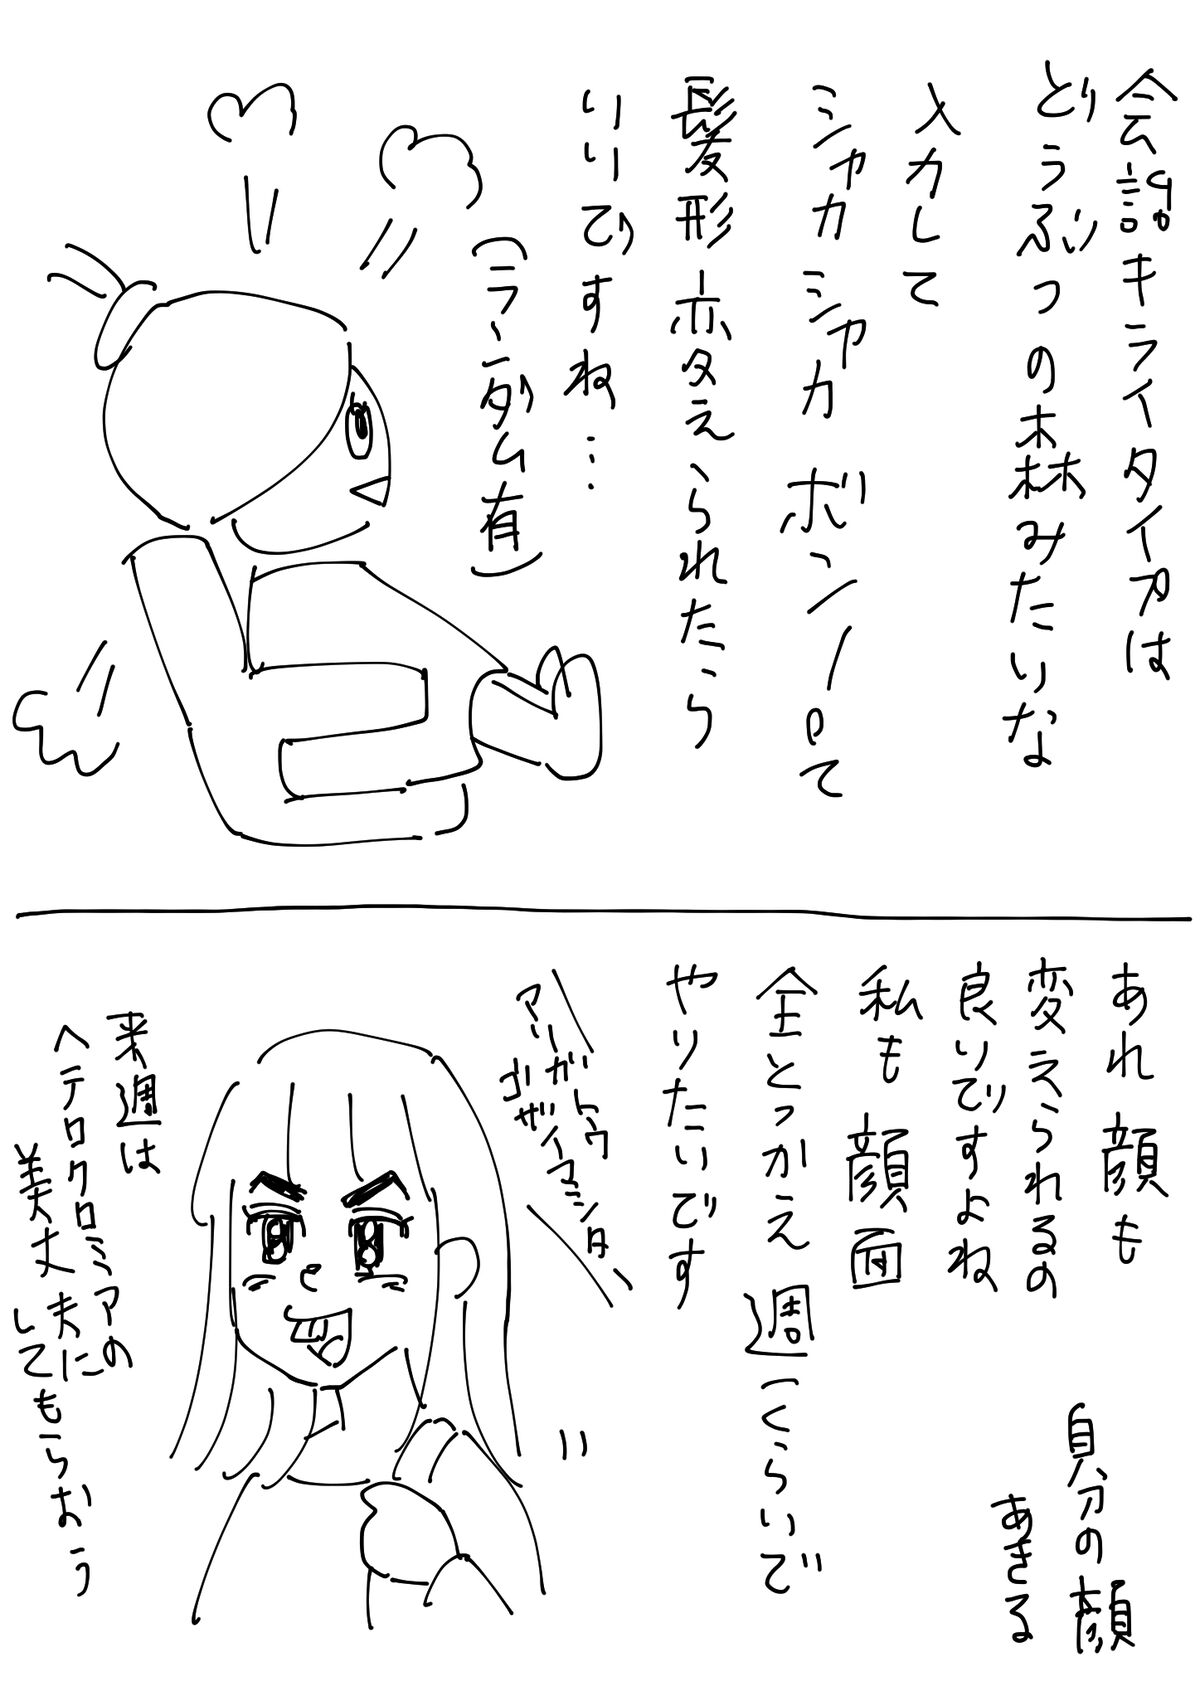 会話キライタイプは
どうぶつの森みたいな
入力して
シャカシャカボンノって
髪形変えられたら
いいですね…
(ランダム有)
あれ顔も
変えられるの
良いですよね
私も顔面
全とっかえ週一くらいで
やりたいです
自分の顔
あきる
アリガトウ
ゴザイマシター
来週は
ヘテロクロミアの
美丈夫に
してもらおう